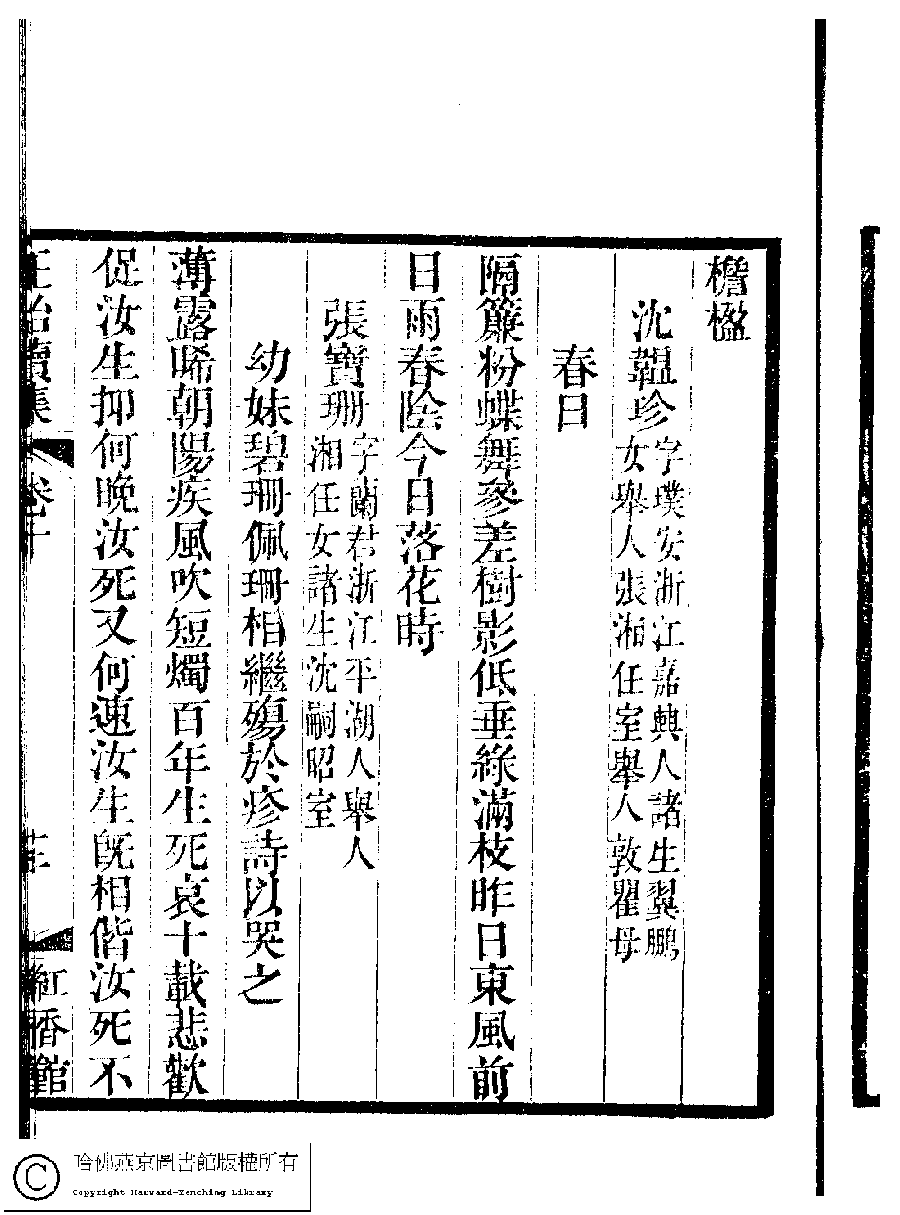 檐楹
沈韞珍字璞安浙江嘉興人諸生翼鵬
女舉人張湘任室舉人敦瞿母
春日
隔簾粉蝶舞參差樹影低垂綠滿枝昨日東風前
日雨春陰今日落花時
張寶珊字蘭君浙江平湖人舉人
湘任女諸生沈嗣昭室
幼妹碧珊佩珊相繼殤於疹詩以哭之
薄露晞朝陽疾風吹短燭百年生死哀十載悲歡
促汝生抑何晚汝死又何速汝生旣相偕汝死不
正始續集 卷十 紅香館
哈佛燕京圖書館版權所有
Copyright Harvard-Yenching Library